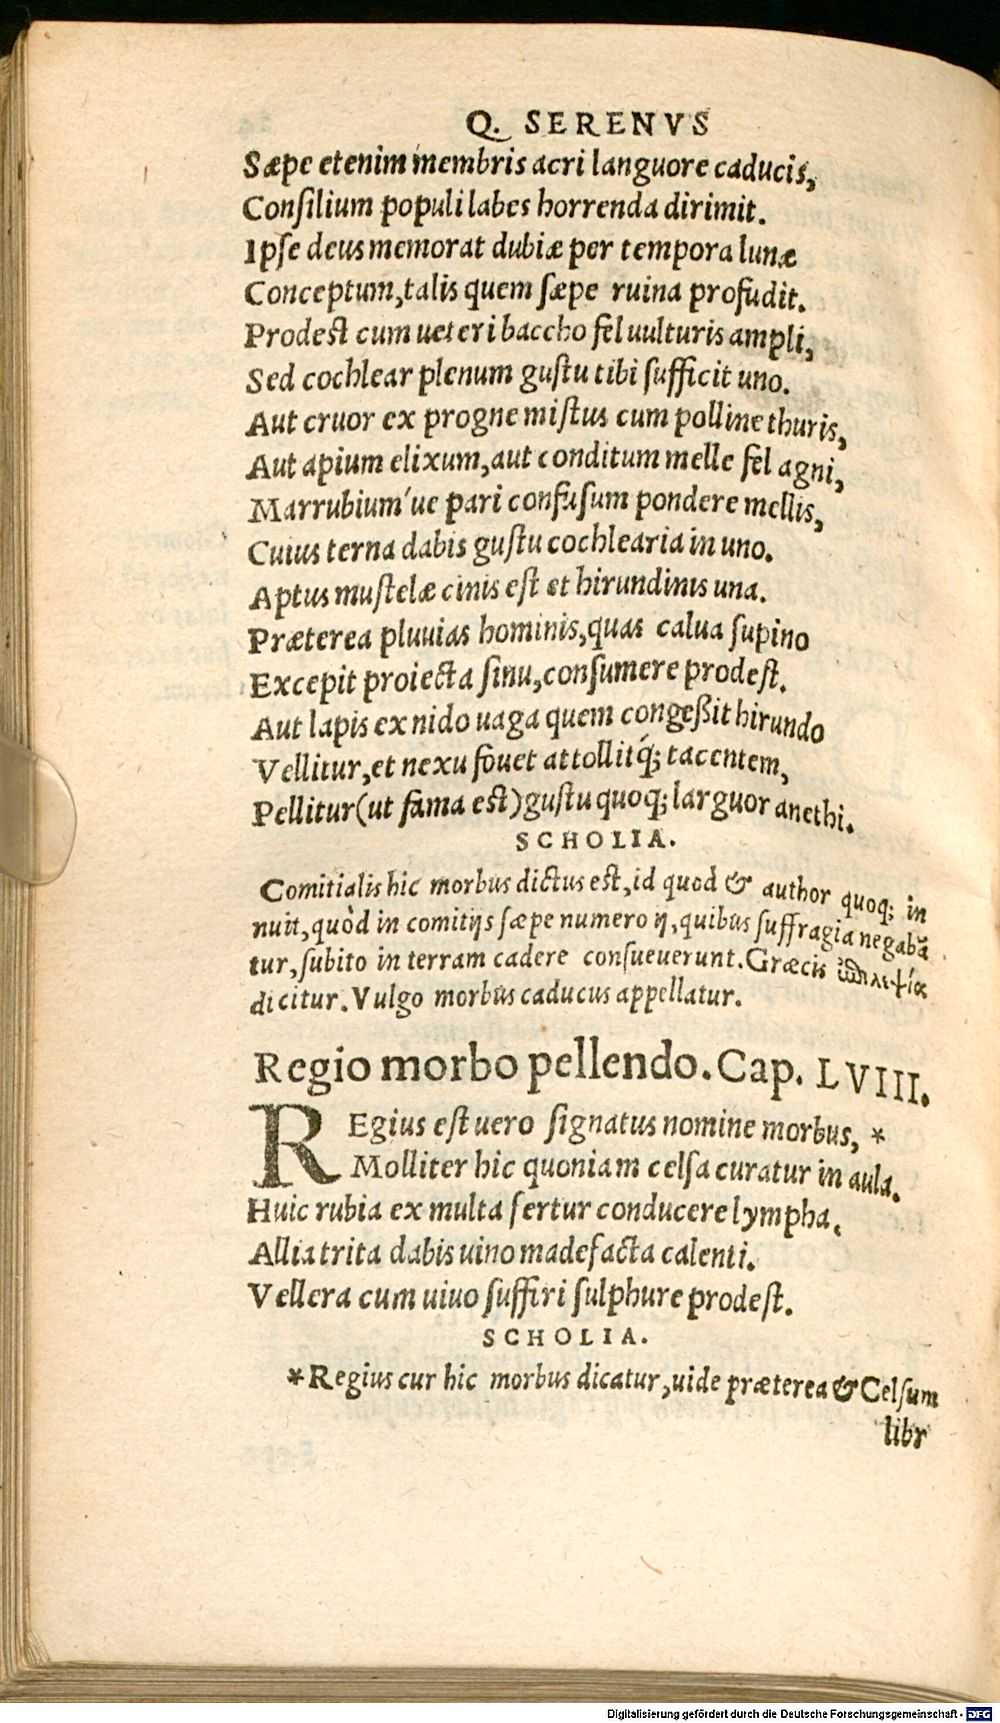 Q. SERENVS
Sæpe etenim membris acri languore caducis,
Conſilium populi labes horrenda dirimit.
Ipſe deus memorat dubiæ per tempora lunæ
Conceptum, talis quem ſæpe ruina profudit.
Prodeſt cum ueteri baccho fel uulturis ampli,
Sed cochlear plenum guſtu tibi ſufficit uno.
Aut cruor ex progne miſtus cum polline thuris,
Aut apium elixum, aut conditum melle fel agni,
Marrubium'ue pari confuſum pondere mellis,
Cuius terna dabis guſtu cochlearia in uno.
Aptus muſtelæ cinis eſt et hirundinis una.
Præterea pluuias hominis, quas calua ſupino
Excepit proiecta ſinu, conſumere prodeſt.
Aut lapis ex nido uaga quem congeßit hirundo
Vellitur, et nexu fouet attollitq́; tacentem,
Pellitur (ut fama eſt) guſtu quoq; larguor anethi.
SCHOLIA.
Comitialis hic morbus dictus eſt, id quod & author quoq; in
nuit, quòd in comitijs ſæpe numero ij, quibus ſuffragia negabã
tur, ſubito in terram cadere conſueuerunt. Græcis ἐπιληψία
dicitur. Vulgo morbus caducus appellatur.
Regio morbo pellendo. Cap. LVIII.
REgius eſt uero ſignatus nomine morbus, *
Molliter hic quoniam celſa curatur in aula.
Huic rubia ex multa fertur conducere lympha.
Allia trita dabis uino madefacta calenti.
Vellera cum uiuo ſuffiri ſulphure prodeſt.
SCHOLIA.
*Regius cur hic morbus dicatur, uide præterea & Celſum
libr
Digitalisierung gefördert durch die Deutsche Forschungsgemeinschaft - DFG